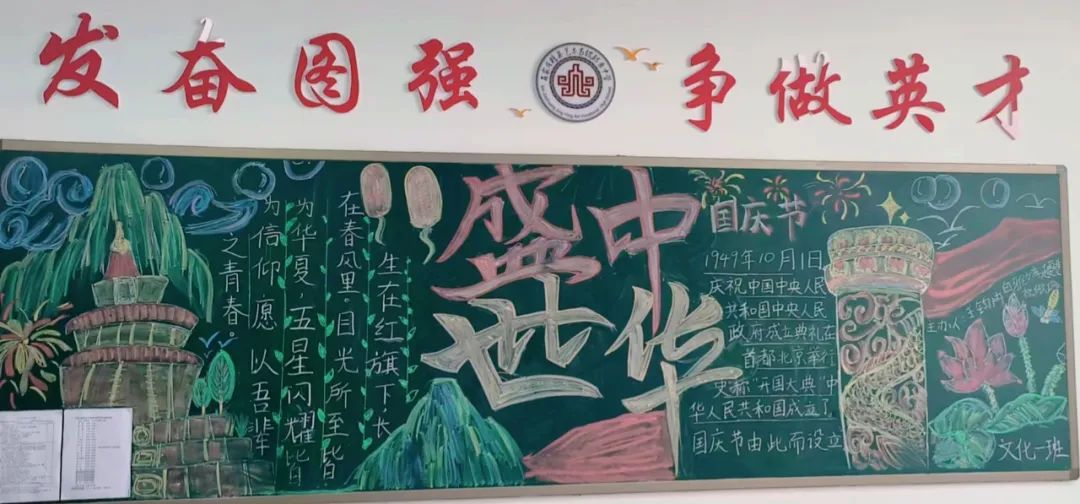 发奋图强 争做英才
生在红旗下,长
在春风里。目光所至皆
为华夏,五星闪耀皆
为信仰愿以吾辈
之青春。
中华
盛世
国庆节
1949年10月1日
庆祝中国中央人民
共和国中央人民
政府成立典礼在
首都北京举行
史称"开国大典"中
华人民共和国成立了
国庆节由此而设立
主办人
文化一班